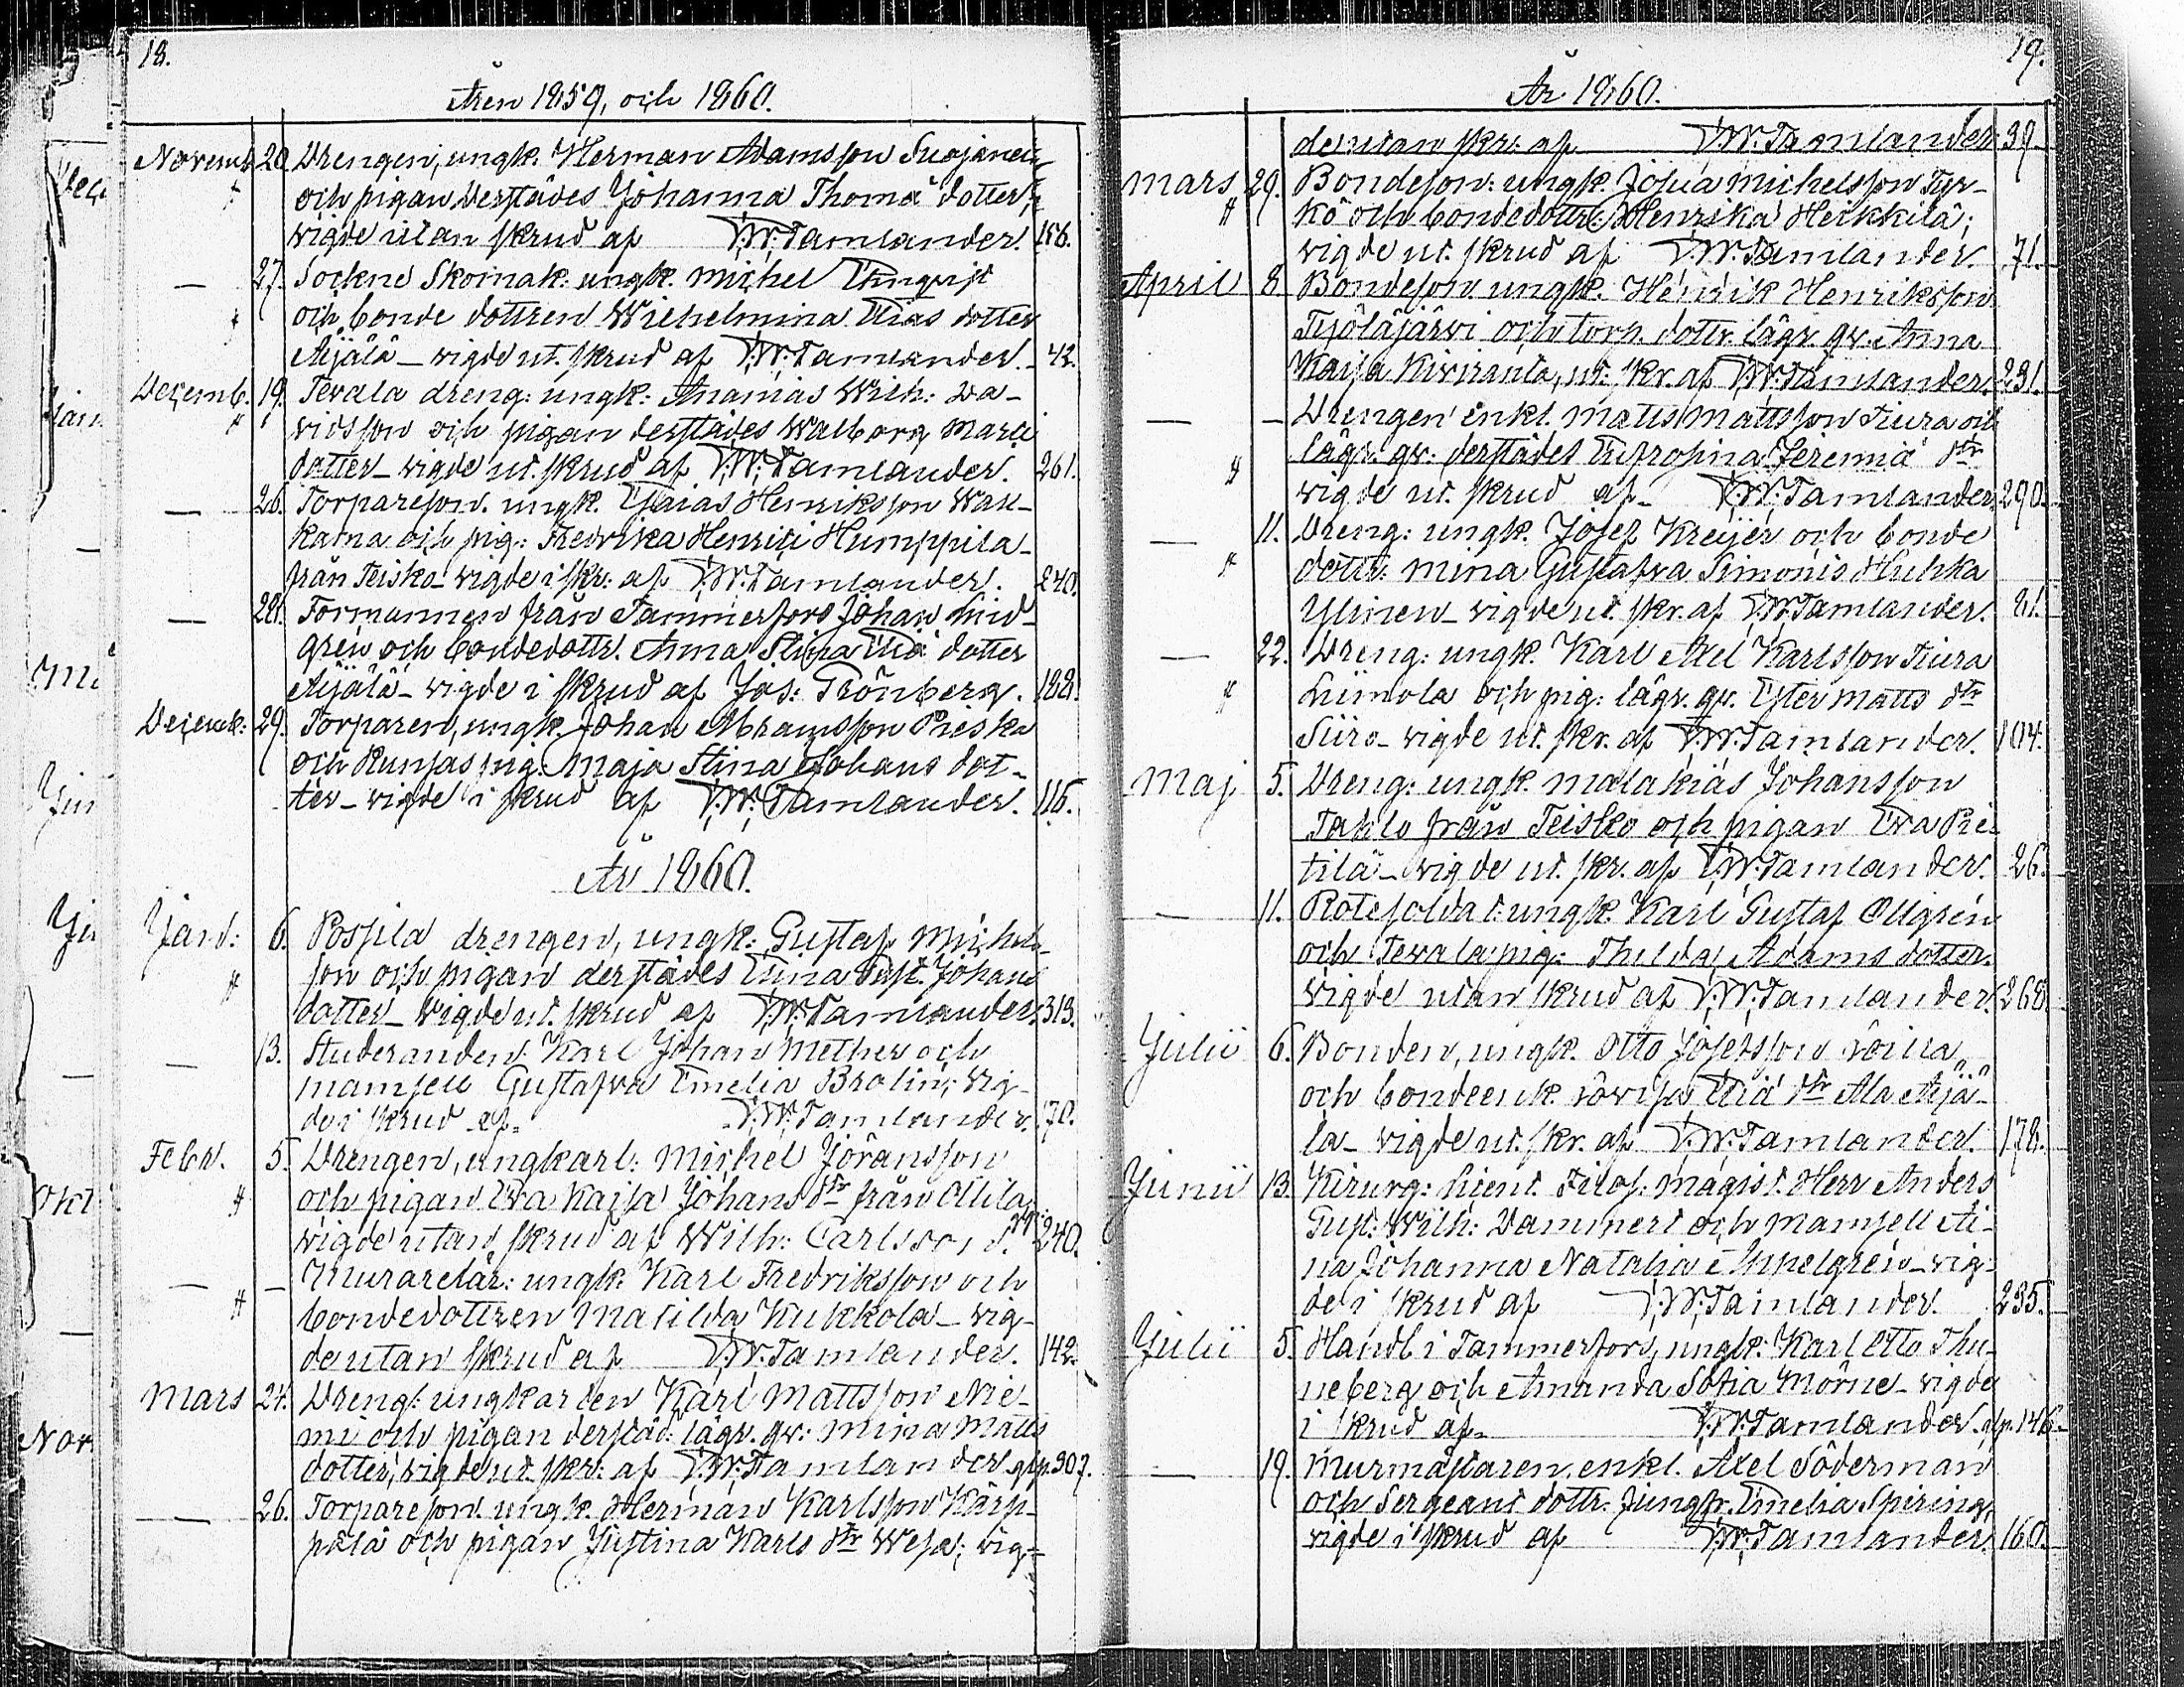 18.
Åren 1859, och 1860.
Novemb. 20. Drengen, ungk. Herman Adamsson Suojanen
och pigan derstädes Johanna Thomæ dotter,
vigde utan skrud af F.W. Tamlander. 156.
— 27. Sockne Skomak. ungk. Michel Enqvist
och bonde dottren Wilhelmina Elias dotter
Äijälä – vigde ut. skrud af F.W. Tamlander. 42.
Decemb. 19. Tevala dreng: ungk: Ananias Wilh: Da-
vidsson och pigan derstädes Walborg Marci
dotter – vigde ut. skrud af F.W. Tamlander. 261.
— 26. Torpareson. ungk. Esaias Henriksson Wak-
katna och pig: Fredrika Henrici Humppila
från Teisko – vigde i skr: af F.W. Tamlander. 240.
— 28. Formannen från Tammerfors Johan Lind-
gren och bondedottr. Anna Stina Eliæ dotter
Äijälä – vigde i skrud af Jos: Grönberg. 188.
Decemb: 29. Torparen, ungk. Johan Abramsson Pieska
och Runsas pig: Maja Stina Johans dot-
ter – vigde i skrud af F.W. Tamlander. 116.
År 1860.
Janv: 6. Possila drengen, ungk: Gustaf Michels-
son och pigan derstädes Eina Gust. Johans
dotter – vigde ut. skrud af F.W. Tamlander. 313.
— 13. Studeranden Karl Johan Mether och
mamsell Gustafva Emelia Brolin; vig-
de i skrud af F.W. Tamlander. 70.
Febr. 5. Drengen, ungkarl: Michel Jöransson
och pigan Eva Kajsa Johans dtr från Ollila
vigde utan skrud af Wilh: Carlsson, 240.
— – Murarelär: ungk: Karl Fredriksson och
bondedottren Matilda Kukkola – vig-
de utan skrud af F.W. Tamlander. 142.
Mars 24. Dreng: ungkarlen Karl Mattsson Nie-
mi och pigan derstäd: lägr. qv: Mina Matts
dotter, vigde ut. skr: af F.W. Tamlander. 307.
— 26. Torpareson. ungk. Herman Karlsson Kärp-
pälä och pigan Justina Karls dtr Wesa; vig-
19.
År 1860.
de utan skr: af F.W. Tamlander. 39.
Mars 29. Bondeson: ungk. Josua Michelsson Tyr-
kö och bondedottr: Henrika Heikkilä;
vigde ut. skrud af F.W. Tamlander. 71.
April 8. Bondeson. ungk. Henrik Henriksson
och torp. dottr. lägr. qv. Anna
Kajsa Kiviranta, ut: skr. af F.W. Tamlander. 231.
— – Drengen enkl. Matts Mattsson Tiura och
lägr. qv: derstädes Eufrosina Jeremiæ dtr
vigde ut. skrud af F.W. Tamlander. 290.
— 11. Dreng: ungk. Josef Kreijer och bonde
dottr: Mina Gustafva Simonis Huhka
Ylinen – vigde ut. skr. af F.W. Tamlander. 81.
— 22. Dreng: ungk. Karl Axel Karlsson Tiura
Liimola och pig: lägr. qv. Ester Matts dtr
Siiro – vigde ut. skr. af F.W. Tamlander. 104.
Maj 5. Dreng: ungk. Malakias Johansson
Taklo från Teisko och pigan Eva Pie-
tilä – vigde ut. skr. af F.W. Tamlander. 26.
— 11. Rotesoldat: ungk. Karl Gustaf Ollgren
och Tevala pig: Thilda Adams dotter.
vigde utan skrud af F.W. Tamlander. 268.
Julii 6. Bonden, ungk. Otto Josefsson
och bondeenk. Lovisa Eliæ dtr Ala Äijä-
lä – vigde ut. skr. af F.W. Tamlander. 178.
Junii 13. Kirurg: Licent. Filos: Magist. Herr Anders
Gust: Wilh: Dammert och Mamsell Ai-
na Johanna Natalia Annelgren – vig-
de i skrud af F.W. Tamlander. 235.
Julii 5. Handl. i Tammerfors, ungk: Karl Otto Thu-
neberg och Amanda Sofia Mörne – vigde
i skrud af F.W. Tamlander. 146.
— 19. Murmästaren, enkl. Axel Söderman
och Sergeant dottr. Jungfr. Emelia Spiring,
vigde i skrud af F.W. Tamlander. 160.